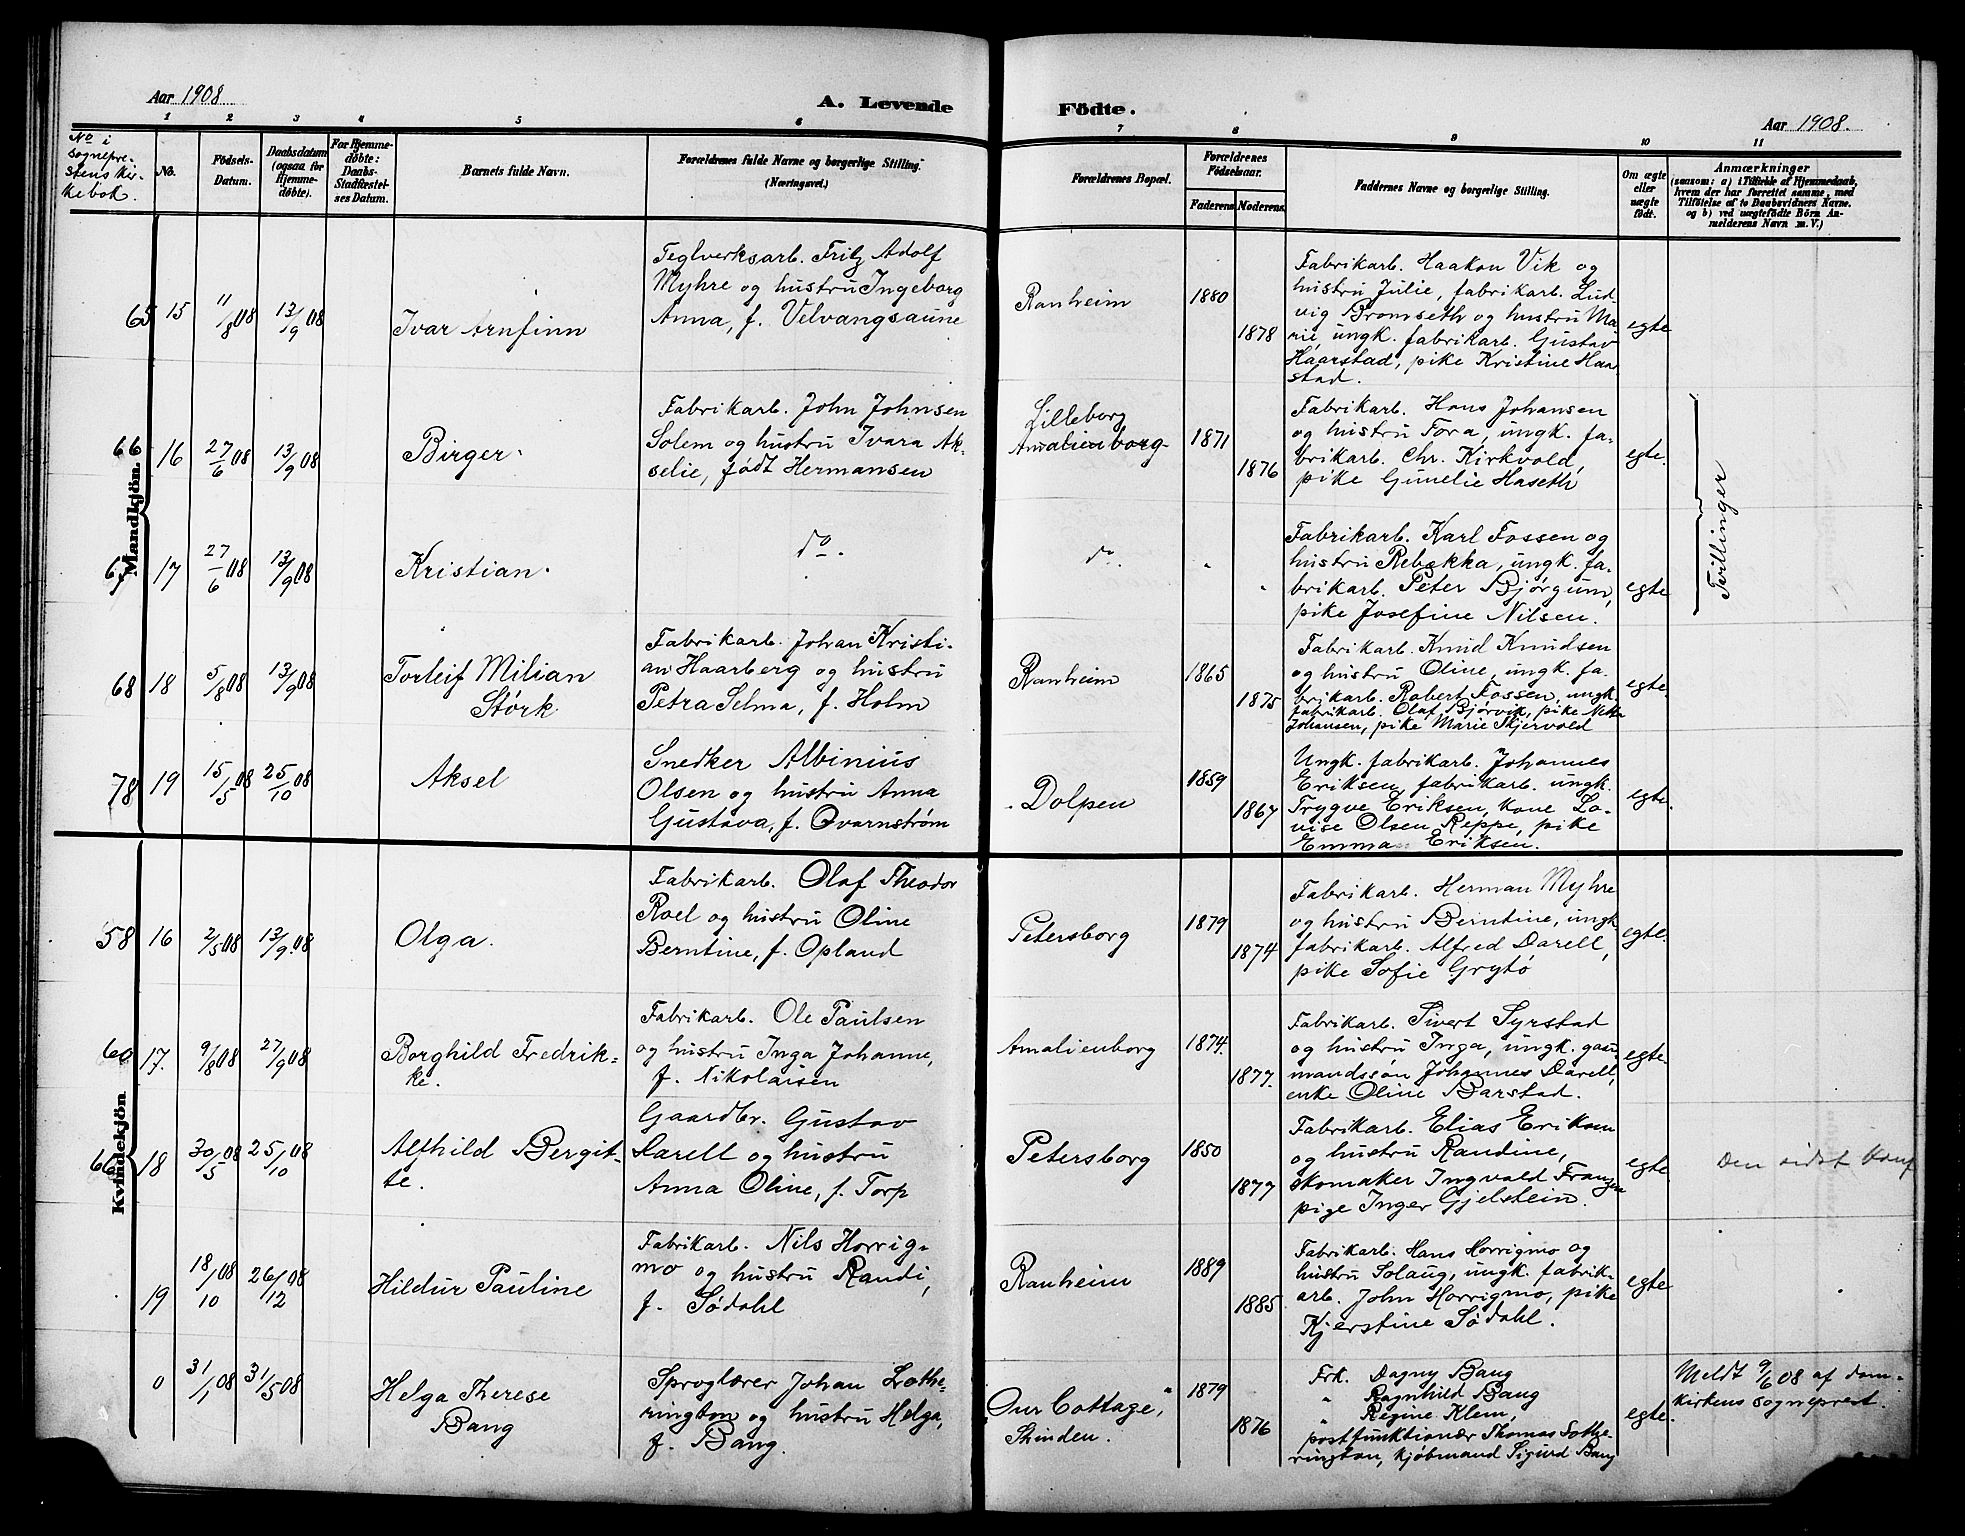 Aar 1908
A. Levende
Födte.
Aar 1908.
1 2 3 4 5 6 7 8 9 10 11
No i sognepre-stens kir-kebok.
No.
Födsels-Datum.
Daabsdatum (ogsaa for Hjemme-döbte).
For Hjemme-döbte: Daabs-Stadfæstel-ses Datum.
Barnets fulde Navn.
Forældrenes fulde Navne og borgerlige Stilling. (Næringsvei.)
Forældrenes Bopæl.
Forældrenes Födselsaar.
Faderens
Moderens
Faddernes Navne og borgerlige Stilling.
Om ægte eller uægte födt.
Anmærkninger
(saasom: a) i Tilfælde af Hjemmedaab,
hvem der har forrettet samme, med
Tilföielse af to Daabsvidners Navne.
og b) ved uægtefödte Börn An-
melderens Navn m. V.)
Mandkjön.
65 15 11/8 08 13/9 08
Ivar Arnfinn
Teglverksarb. Fritz Adolf
Myhre og hustru Ingeborg
Anna, f. Velvangsaune
Ranheim
1880
1878
Fabrikarb. Haakon Vik og
hustru Julie, fabrikarb. Lud-
vig Bromseth og hustru Ma-
rie, ungk. fabrikarb. Gustav
Haarstad, pike Kristine Haar-
stad.
egte
66 16 27/6 08 13/9 08
Birger.
Fabrikarb. John Johnsen
Solem og hustru Ivara Ak-
selie, født Hermansen
Lilleborg
Amalienborg
1871
1876
Fabrikarb. Hans Johansen
og hustru Tora, ungk. fa-
brikarb. Chr. Kirkvold,
pike Gunelie Haseth
egte.
Tvillinger
67 17 27/6 08 13/9 08
Kristian.
do.
do.
Fabrikarb. Karl Fossen og
hustru Rebekka, ungk. fa-
brikarb. Peter Bjørgum,
pike Josefine Nilsen.
egte
68 18 5/8 08 13/9 08
Torleif Milian
Størk.
Fabrikarb. Johan Kristi-
an Haarberg og hustru
Petra Selma, f. Holm
Ranheim
1865
1875
Fabrikarb. Knud Knudsen
og hustru Oline, ungk. fa-
brikarb. Robert Fossen, ungk.
fabrikarb. Olaf Bjørvik, pike Netta
Johansen, pike Marie Skjervold
egte.
78 19 15/5 08 25/10 08
Aksel
Snedker Albinius
Olsen og hustru Anna
Gustava, f. Qvarnstrøm
Dolpen
1859
1867
Ungk. fabrikarb. Johannes
Eriksen, fabrikarb. ungk.
Trygve Eriksen, kone Lo-
vise Olsen Reppe, pike
Emma Eriksen.
egte.
Kvindekjön.
58 16 2/5 08 13/9 08
Olga.
Fabrikarb. Olaf Theodor
Roel og hustru Oline
Berntine, f. Opland
Petersborg
1879
1874
Fabrikarb. Herman Myhre
og hustru Berntine, ungk.
fabrikarb. Alfred Darell,
pike Sofie Grytø
egte.
60 17. 9/8 08 27/9 08
Borghild Fredrik-
ke.
Fabrikarb. Ole Paulsen
og hustru Inga Johanne,
f. Nikolaisen
Amalienborg
1874.
1877.
Fabrikarb. Sivert Syrstad
og hustru Inga, ungk. gaar-
mandssøn Johannes Darell,
enke Oline Barstad.
egte.
66 18 30/5 08 25/10 08
Alfhild Bergit-
te.
Gaardbr. Gustav
Darell og hustru
Anna Oline, f. Torp
Petersborg
1850
1877
Fabrikarb. Elias Eriksen
og hustru Randine,
skomaker Ingvald Franzen
pige Inger Gjelstein.
egte
Den sidst
19 18/10 08 26/12 08
Hildur Pauline
Fabrikarb. Nils Horrig-
mo og hustru Randi,
f. Sødahl
Ranheim
1889
1885
Fabrikarb. Hans Horrigmo og
hustru Solaug, ungk. fabrik-
arb. John Horrigmo, pike
Kjerstine Sødahl.
egte
0 31/1 08 31/5 08
Helga Therese
Bang
Sproglærer Johan Lothe-
rington og hustru Helga,
f. Bang.
Our Cottage",
Strinden.
1879
1876
Frk. Dagny Bang
" Ragnhild Bang
" Regine Klem,
postfunktionær Thomas Lothe-
rington, kjøbmand Sigurd Bang
egte.
Meldt 9/6 08 af dom-
kirkens sogneprest.